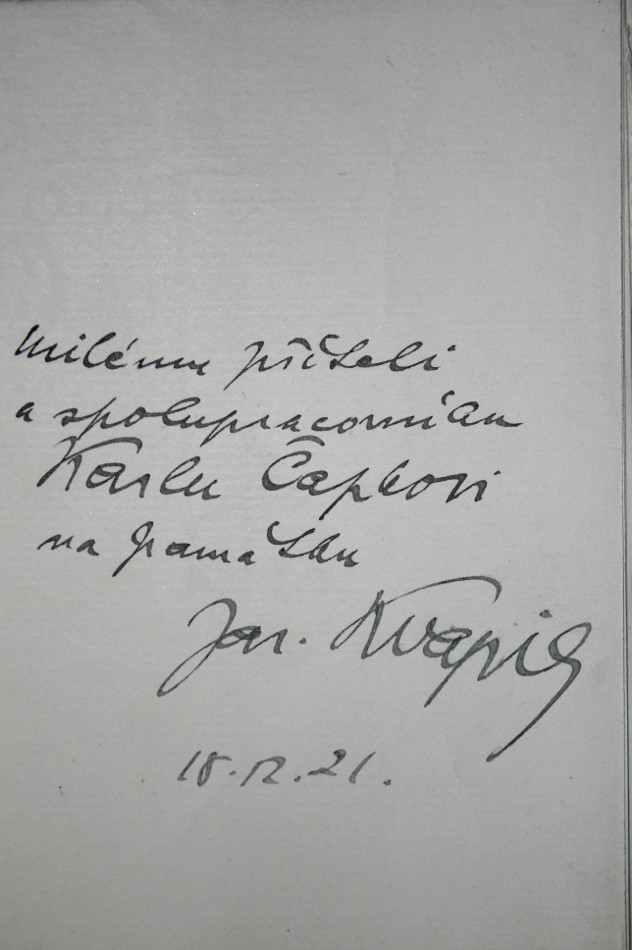 Milému příteli
a spolupracovníku
Karlu Čapkovi
na památku
Jar. Kvapil
18.12.21.